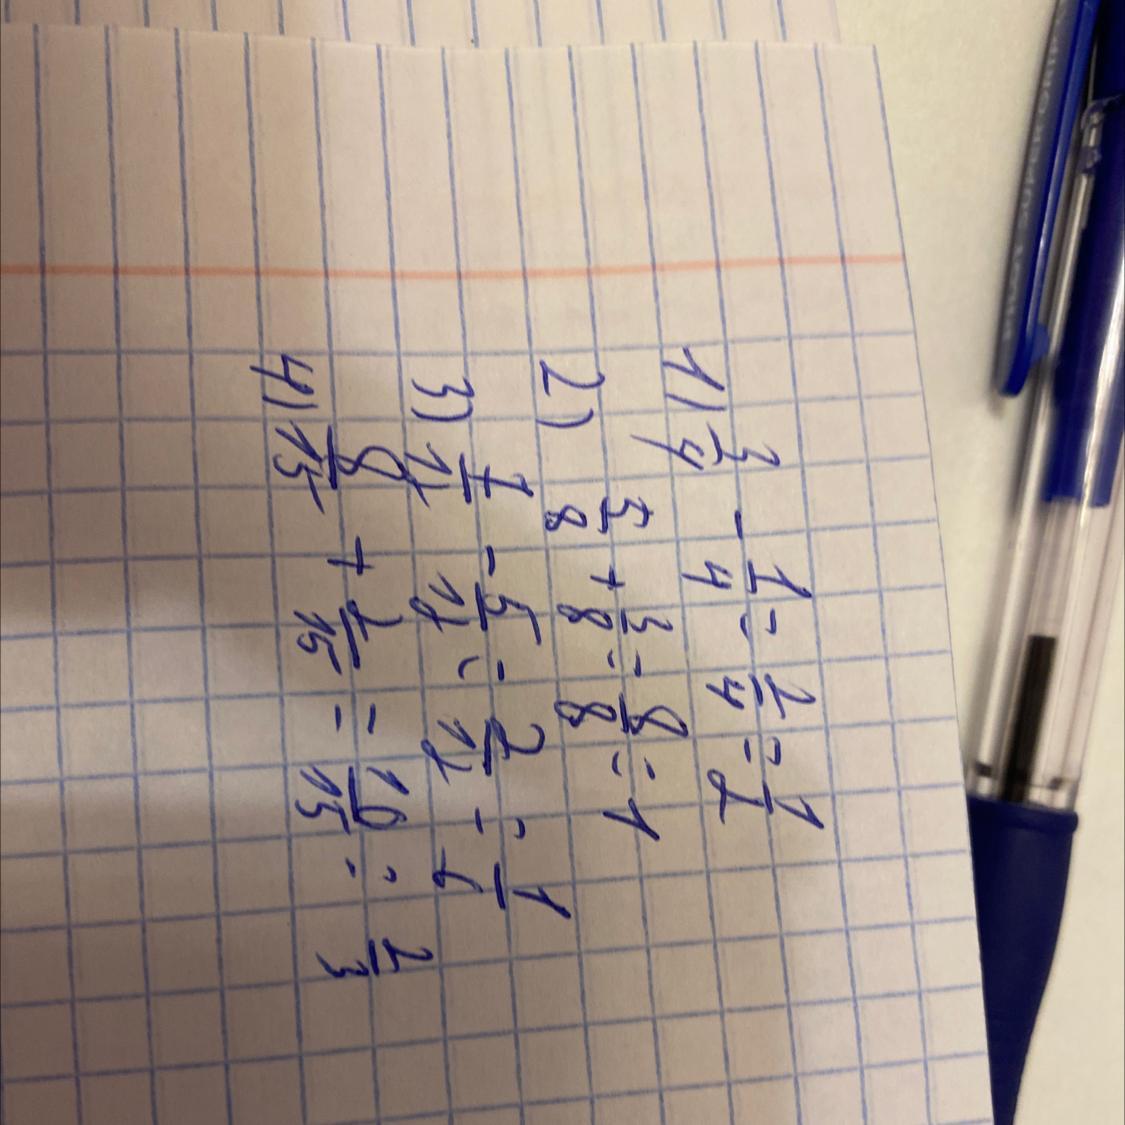 1) 3/4 - 1/4 = 2/4 = 1/2
2) 5/8 + 3/8 = 8/8 = 1
3) 7/12 - 5/12 = 2/12 = 1/6
4) 8/15 + 2/15 = 10/15 = 2/3